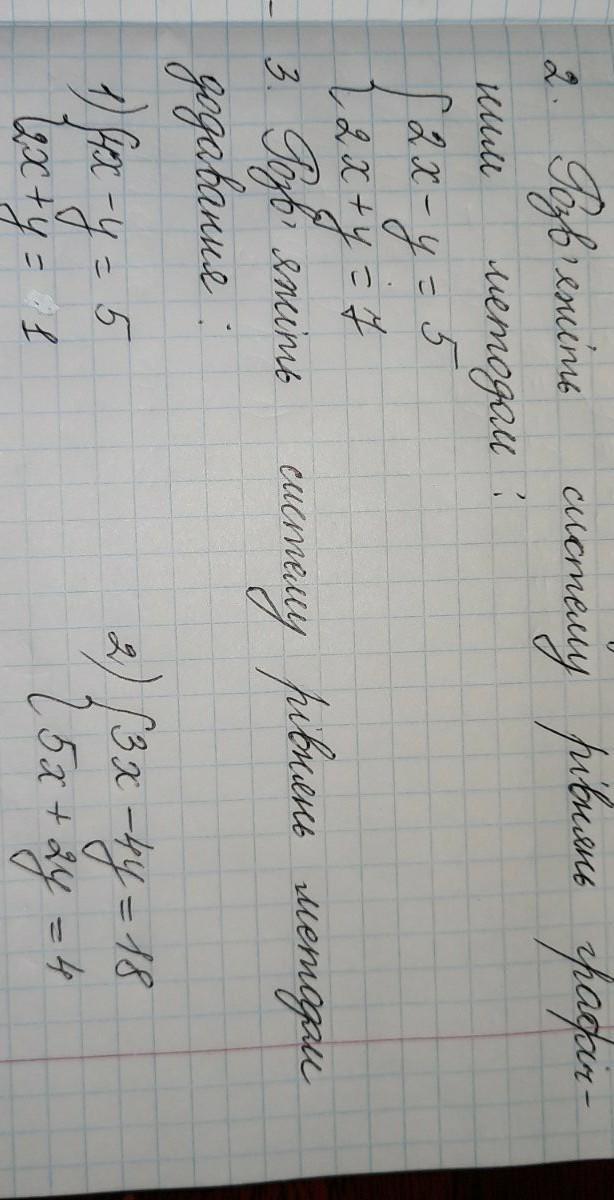 2. Розв'яжіть систему рівнянь графіч-
ним методом:
{2x - y = 5
{2x + y = 7
3. Розв'яжіть систему рівнянь методом
додавання:
1) {4x - y = 5 2) {3x - 4y = 18
{2x + y = 1 {5x + 2y = 4